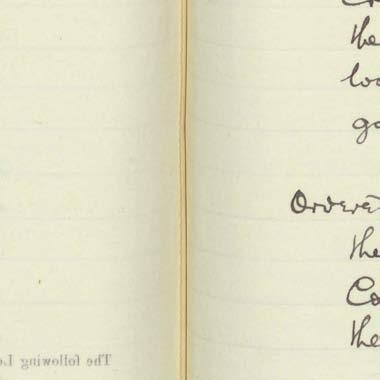 the
lo
go
Ordere
the
Co
the
The following Le